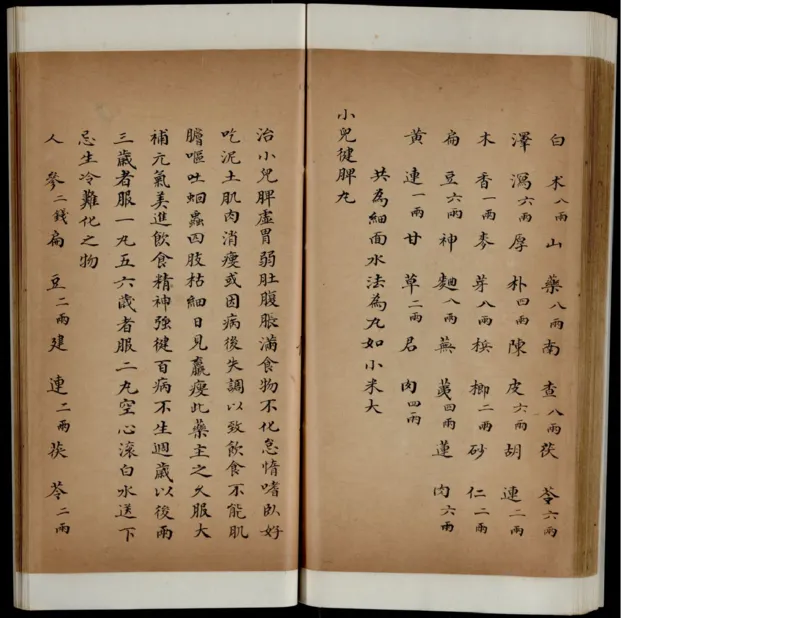 白术八兩山藥八兩南查八兩茯苓六兩
澤瀉六兩厚朴四兩陳皮六兩胡連二兩
木香一兩麥芽八兩梹榔二兩砂仁二兩
扁豆六兩神麯八兩蕪荑四兩蓮肉六兩
黃連一兩甘草二兩君肉四兩
共為細面水法為丸如小米大
小兒健脾丸
治小兒脾虛胃弱肚腹脹滿食物不化怠惰嗜臥好
吃泥土肌肉消瘦或因病後失調以致飲食不能肌
膚嘔吐蛔蟲四肢枯細日見羸瘦此藥主之久服大
補元氣美進飲食精神強健百病不生週歲以後兩
三歲者服一丸五六歲者服二丸空心滾白水送下
忌生冷難化之物
人參二錢扁豆二兩建連二兩茯苓二兩